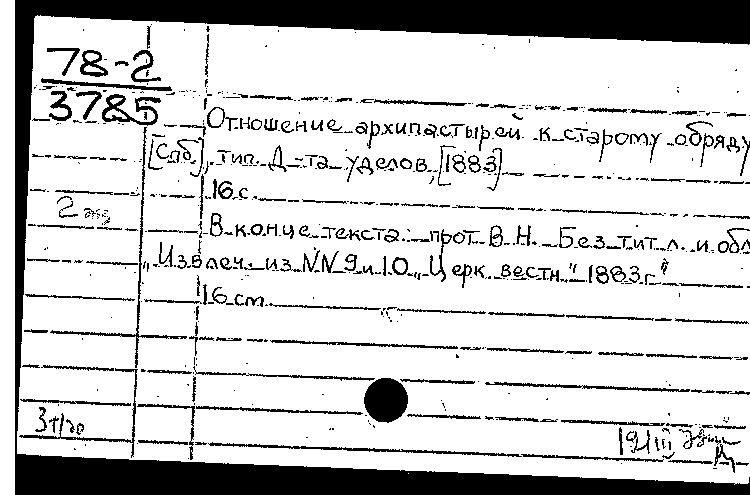 78-2
3785
Отношение архипастырей к старому обряду
[Спб], тип. Д-та уделов, [1883]
16 с.
2 экз
В конце текста: прот. В. Н. Без тит. л. и обл
„Извлеч. из NN 9 и 10 „Церк. вестн." 1883 г."
16 см.